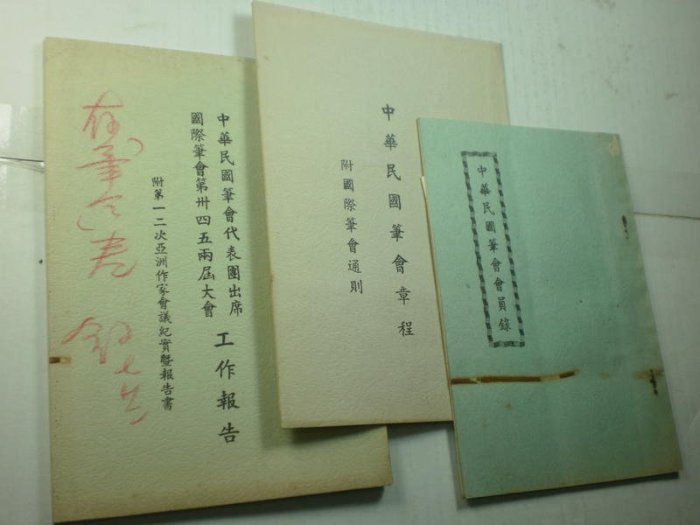 中華民國筆會代表團出席
國際筆會第卅四五兩屆大會
工作報告
附第一二次亞洲作家會議紀實暨報告書
中華民國筆會章程
附國際筆會通則
中華民國筆會會員錄